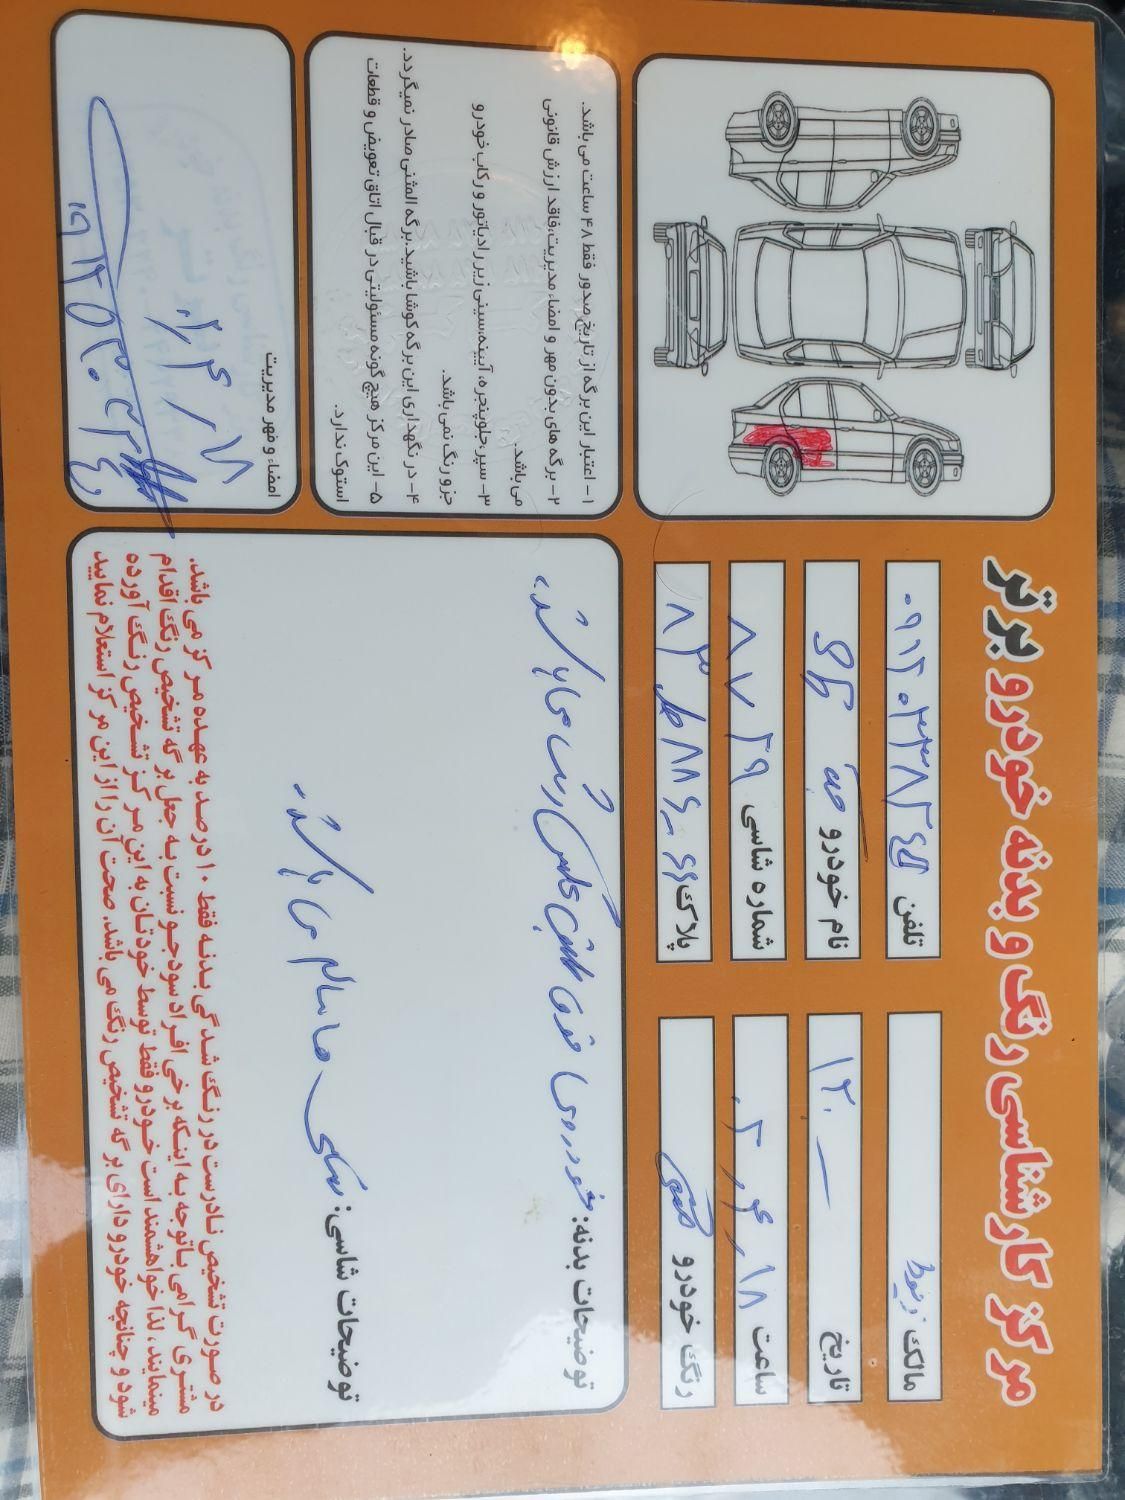 مرکز کارشناسی رنگ و بدنه خودرو برتر
مالک
تلفن ۰۹۱۲۰
تاریخ ۱۲۰
نام خودرو
ساعت ۱۸
شماره شاسی ۸۷۲۹
رنگ خودرو
پلاک
توضیحات بدنه: خودروی فوق
رنگ می باشد.
توضیحات شاسی:
سالم می باشد.
در صورت تشخیص نادرست در رنگ شدگی بدنه فقط ۱۰ درصد به عهده مرکز می باشد.
مشتری گرامی باتوجه به اینکه برخی افراد سودجو نسبت به جعل برگه تشخیص رنگ اقدام
مینمایند، لذا خواهشمند است خودرو فقط توسط خودتان به این مرکز تشخیص رنگ آورده
شود و چنانچه خودرو دارای برگه تشخیص رنگ می باشد، صحت آن را از این مرکز استعلام نمایید
۱- اعتبار این برگه از تاریخ صدور فقط ۴۸ ساعت می باشد.
۲- برگه های بدون مهر و امضاء مدیریت، فاقد ارزش قانونی
می باشد.
۳- سپر، جلوپنجره، آیینه، سینی زیر رادیاتور و رکاب خودرو
جزو رنگ نمی باشد.
۴- در نگهداری این برگه کوشا باشید. برگه المثنی صادر نمیگردد.
۵- این مرکز هیچ گونه مسئولیتی در قبال اتاق تعویض و قطعات
استوک ندارد.
امضاء و مهر مدیریت